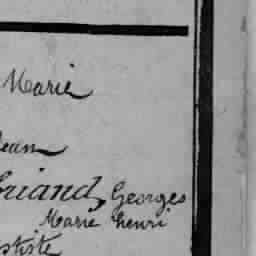 Marie
Jean
briand, Georges
Marie henri
ptiste